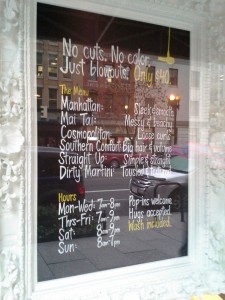 No cuts. No color.
Just blowouts! Only $40
The Menu
Manhattan: Sleek & smooth
Mai Tai: Messy & beachy
Cosmopolitan: Loose curls
Southern Comfort: Big hair & volume
Straight Up: Simple & straight
Dirty Martini: Tousled &
Hours
Mon-Wed: 7am-8pm Pop-ins welcome.
Thrs-Fri: 7am-9pm Hugs accepted.
Sat: Wash included.
Sun: